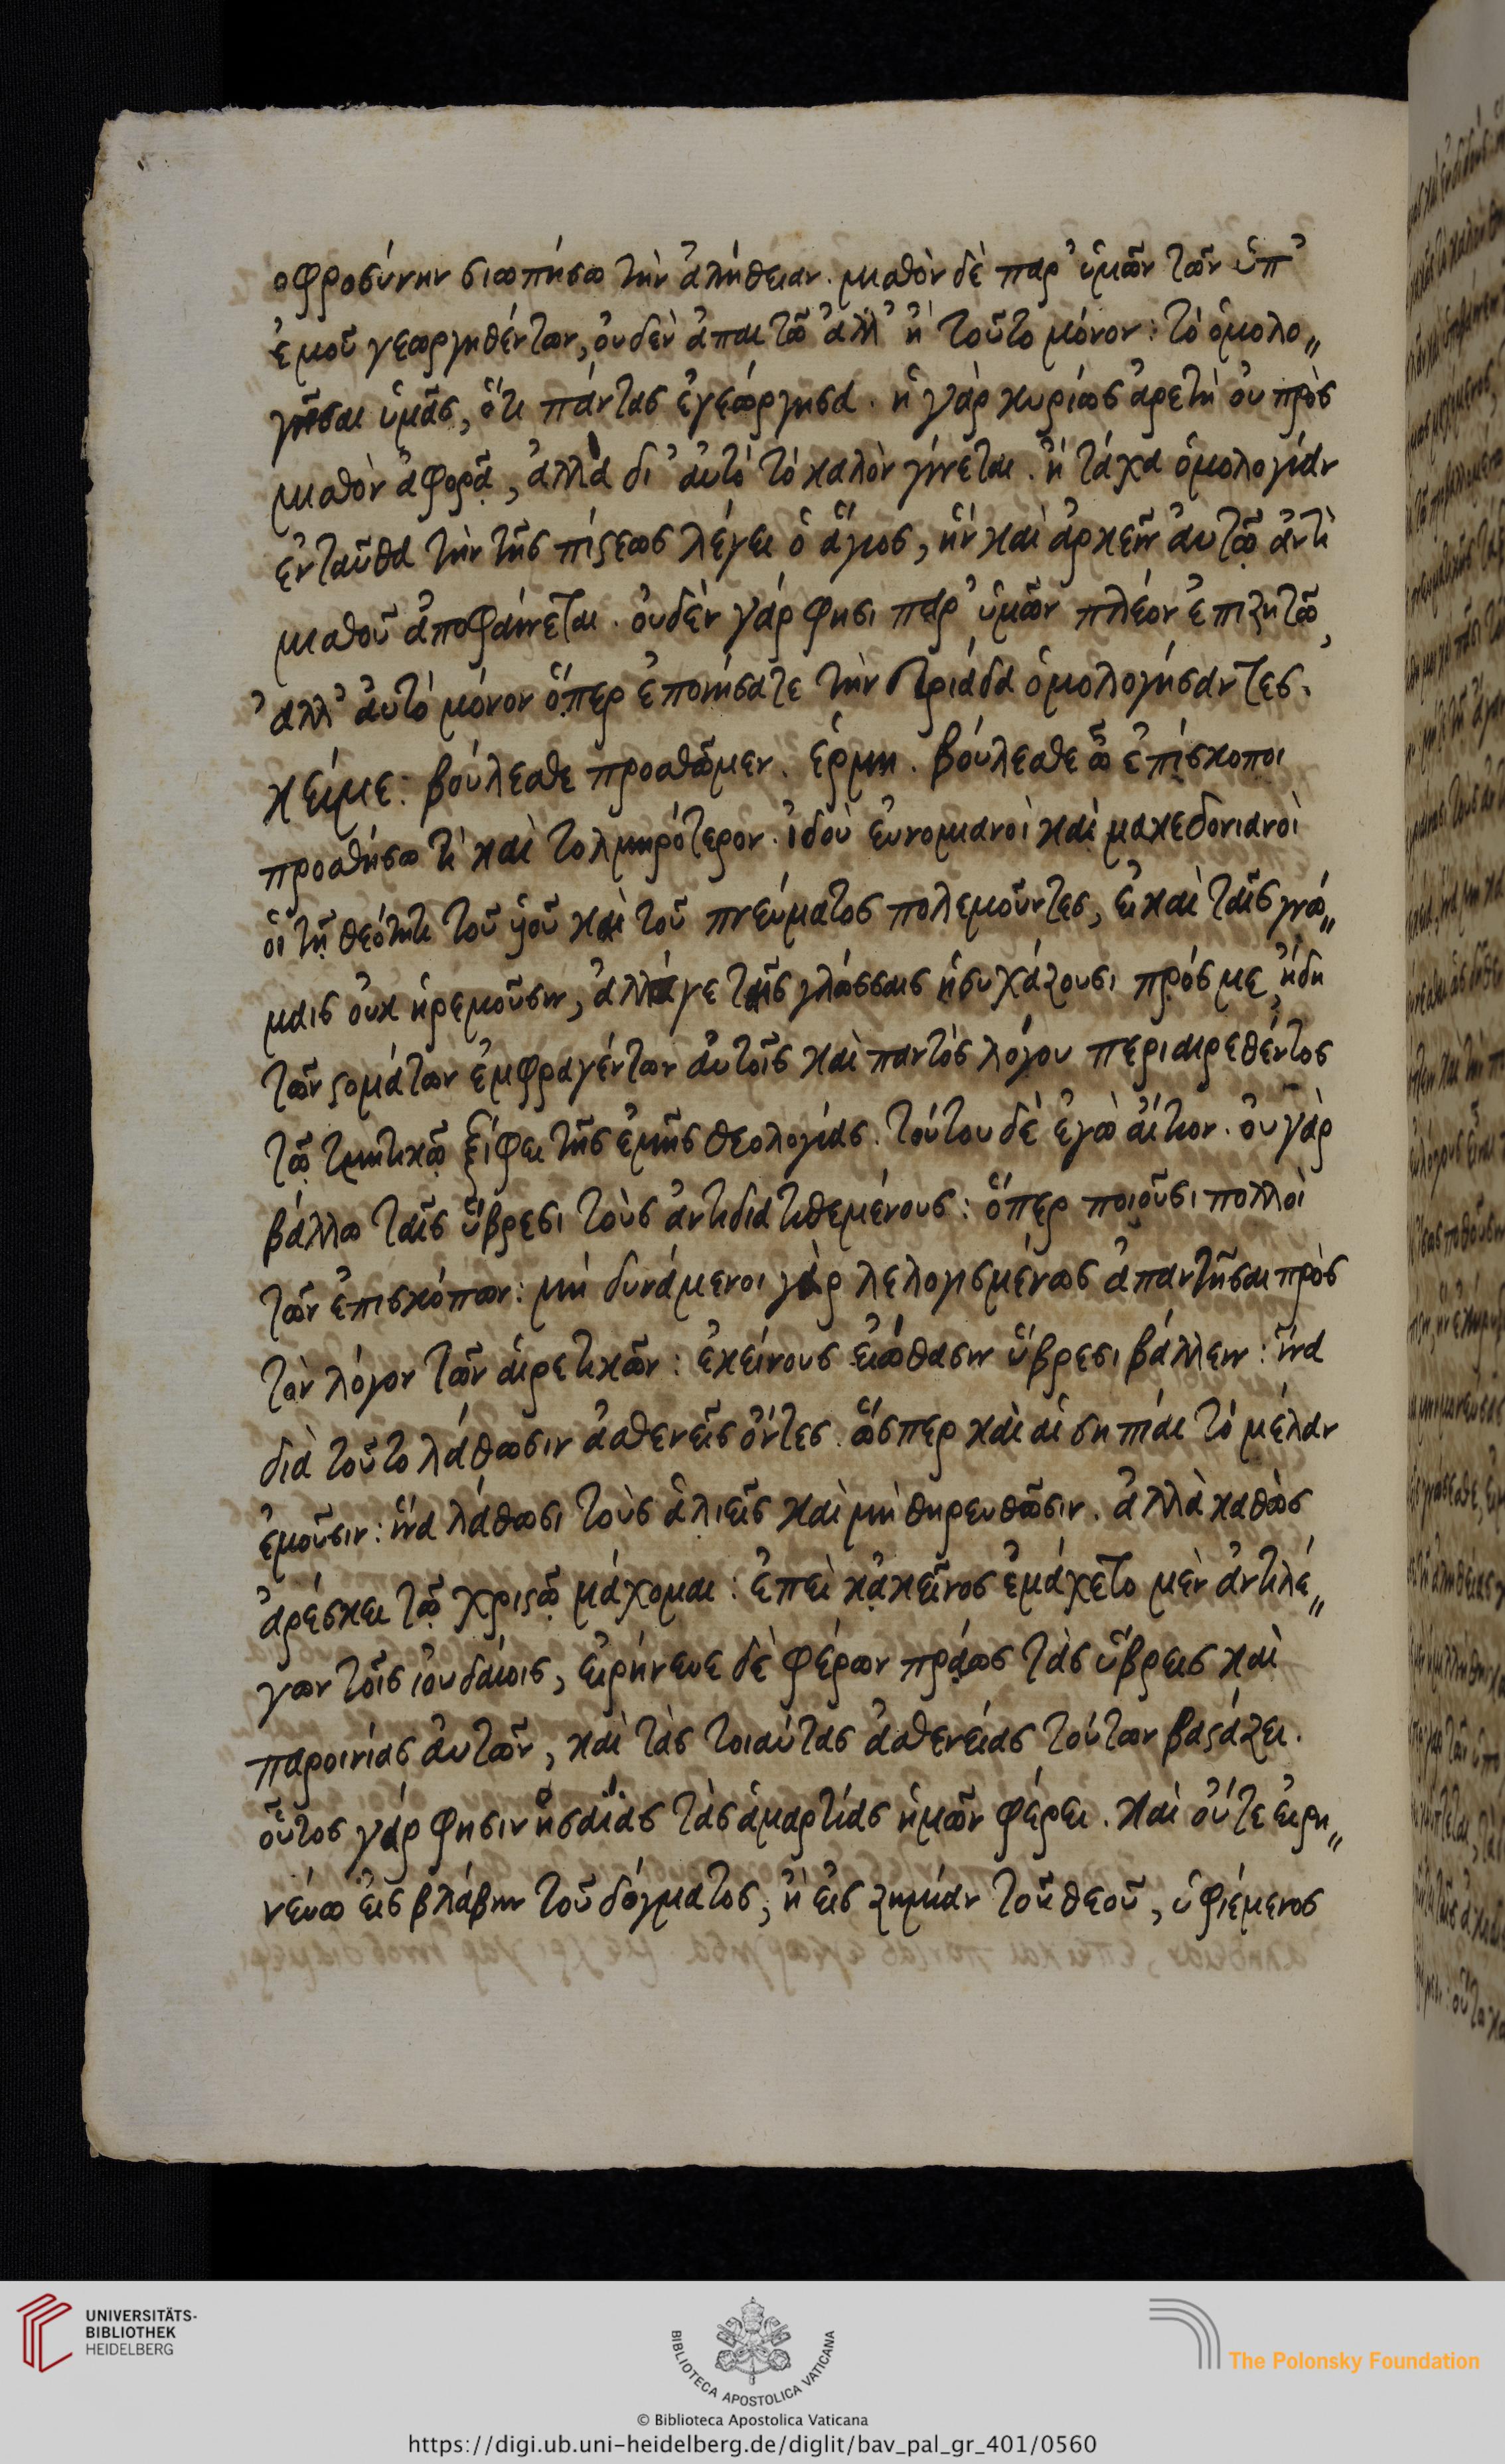 οφροσύνην σιωπήσω τὴν ἀλήθειαν. μισθὸν δὲ παρ' ὑμῶν τῶν ὑπ'
ἐμοῦ γεωργηθέντων, οὐδὲν ἀπαιτῶ ἀλλ' ἢ τοῦτο μόνον: τὸ ὁμολο„
γῆσαι ὑμᾶς, ὅτι πάντας ἐγεώργησα. ἡ γὰρ κυρίως ἀρετὴ οὐ πρὸς
μισθὸν ἀφορᾷ, ἀλλὰ δι' αὐτὸ τὸ καλὸν γίνεται. ἢ τάχα ὁμολογίαν
ἐνταῦθα τὴν τῆς πίστεως λέγει ὁ ἅγιος, ἣν καὶ ἀρκεῖν αὐτῷ ἀντὶ
μισθοῦ ἀποφαίνεται. οὐδὲν γάρ φησι παρ' ὑμῶν πλέον ἐπιζητῶ,
ἀλλ' αὐτὸ μόνον ὅπερ ἐποιήσατε τὴν τριάδα ὁμολογήσαντες.
κείμε: βούλεσθε προσθῶμεν. ἑρμη. βούλεσθε ὦ ἐπίσκοποι
προσθήσω τὶ καὶ τολμηρότερον. ἰδοὺ εὐνομιανοὶ καὶ μακεδονιανοὶ
οἱ τῇ θεότητι τοῦ υἱοῦ καὶ τοῦ πνεύματος πολεμοῦντες, εἰ καὶ ταῖς γνώ„
μαις οὐκ ἠρεμοῦσιν, ἀλλάγε ταῖς γλώσσαις ἡσυχάζουσι πρός με, ἤδη
τῶν στομάτων ἐμφραγέντων αὐτοῖς καὶ παντὸς λόγου περιαιρεθέντος
τῷ τμητικῷ ξίφει τῆς ἐμῆς θεολογίας. τούτου δὲ ἐγὼ αἴτιον. οὐ γὰρ
βάλλω ταῖς ὕβρεσι τοὺς ἀντιδιατιθεμένους: ὅπερ ποιοῦσι πολλοὶ
τῶν ἐπισκόπων: μὴ δυνάμενοι γὰρ λελογισμένως ἀπαντῆσαι πρὸς
τὸν λόγον τῶν αἱρετικῶν: ἐκείνους εἰώθασιν ὕβρεσι βάλλειν: ἵνα
διὰ τοῦτο λάθωσιν ἀσθενεῖς ὄντες. ὥσπερ καὶ αἱ σηπίαι τὸ μέλαν
ἐμοῦσιν: ἵνα λάθωσι τοὺς ἁλιεῖς καὶ μὴ θηρευθῶσιν. ἀλλὰ καθὼς
ἀρέσκει τῷ χριστῷ μάχομαι: ἐπεὶ κἀκεῖνος ἐμάχετο μὲν ἀντιλέ„
γων τοῖς ἰουδαίοις, εἰρήνευε δὲ φέρων πράως τὰς ὕβρεις καὶ
παροινίας αὐτῶν, καὶ τὰς τοιαύτας ἀσθενείας τούτων βαστάζει.
οὗτος γάρ φησιν ἡσαΐας τὰς ἁμαρτίας ἡμῶν φέρει. καὶ οὔτε εἰρη„
νεύω εἰς βλάβην τοῦ δόγματος, ἢ εἰς ζημίαν τοῦ θεοῦ, ὑφιέμενος
UNIVERSITÄTS-
BIBLIOTHEK
HEIDELBERG
BIBLIOTECA APOSTOLICA VATICANA
The Polonsky Foundation
© Biblioteca Apostolica Vaticana
https://digi.ub.uni-heidelberg.de/diglit/bav_pal_gr_401/0560